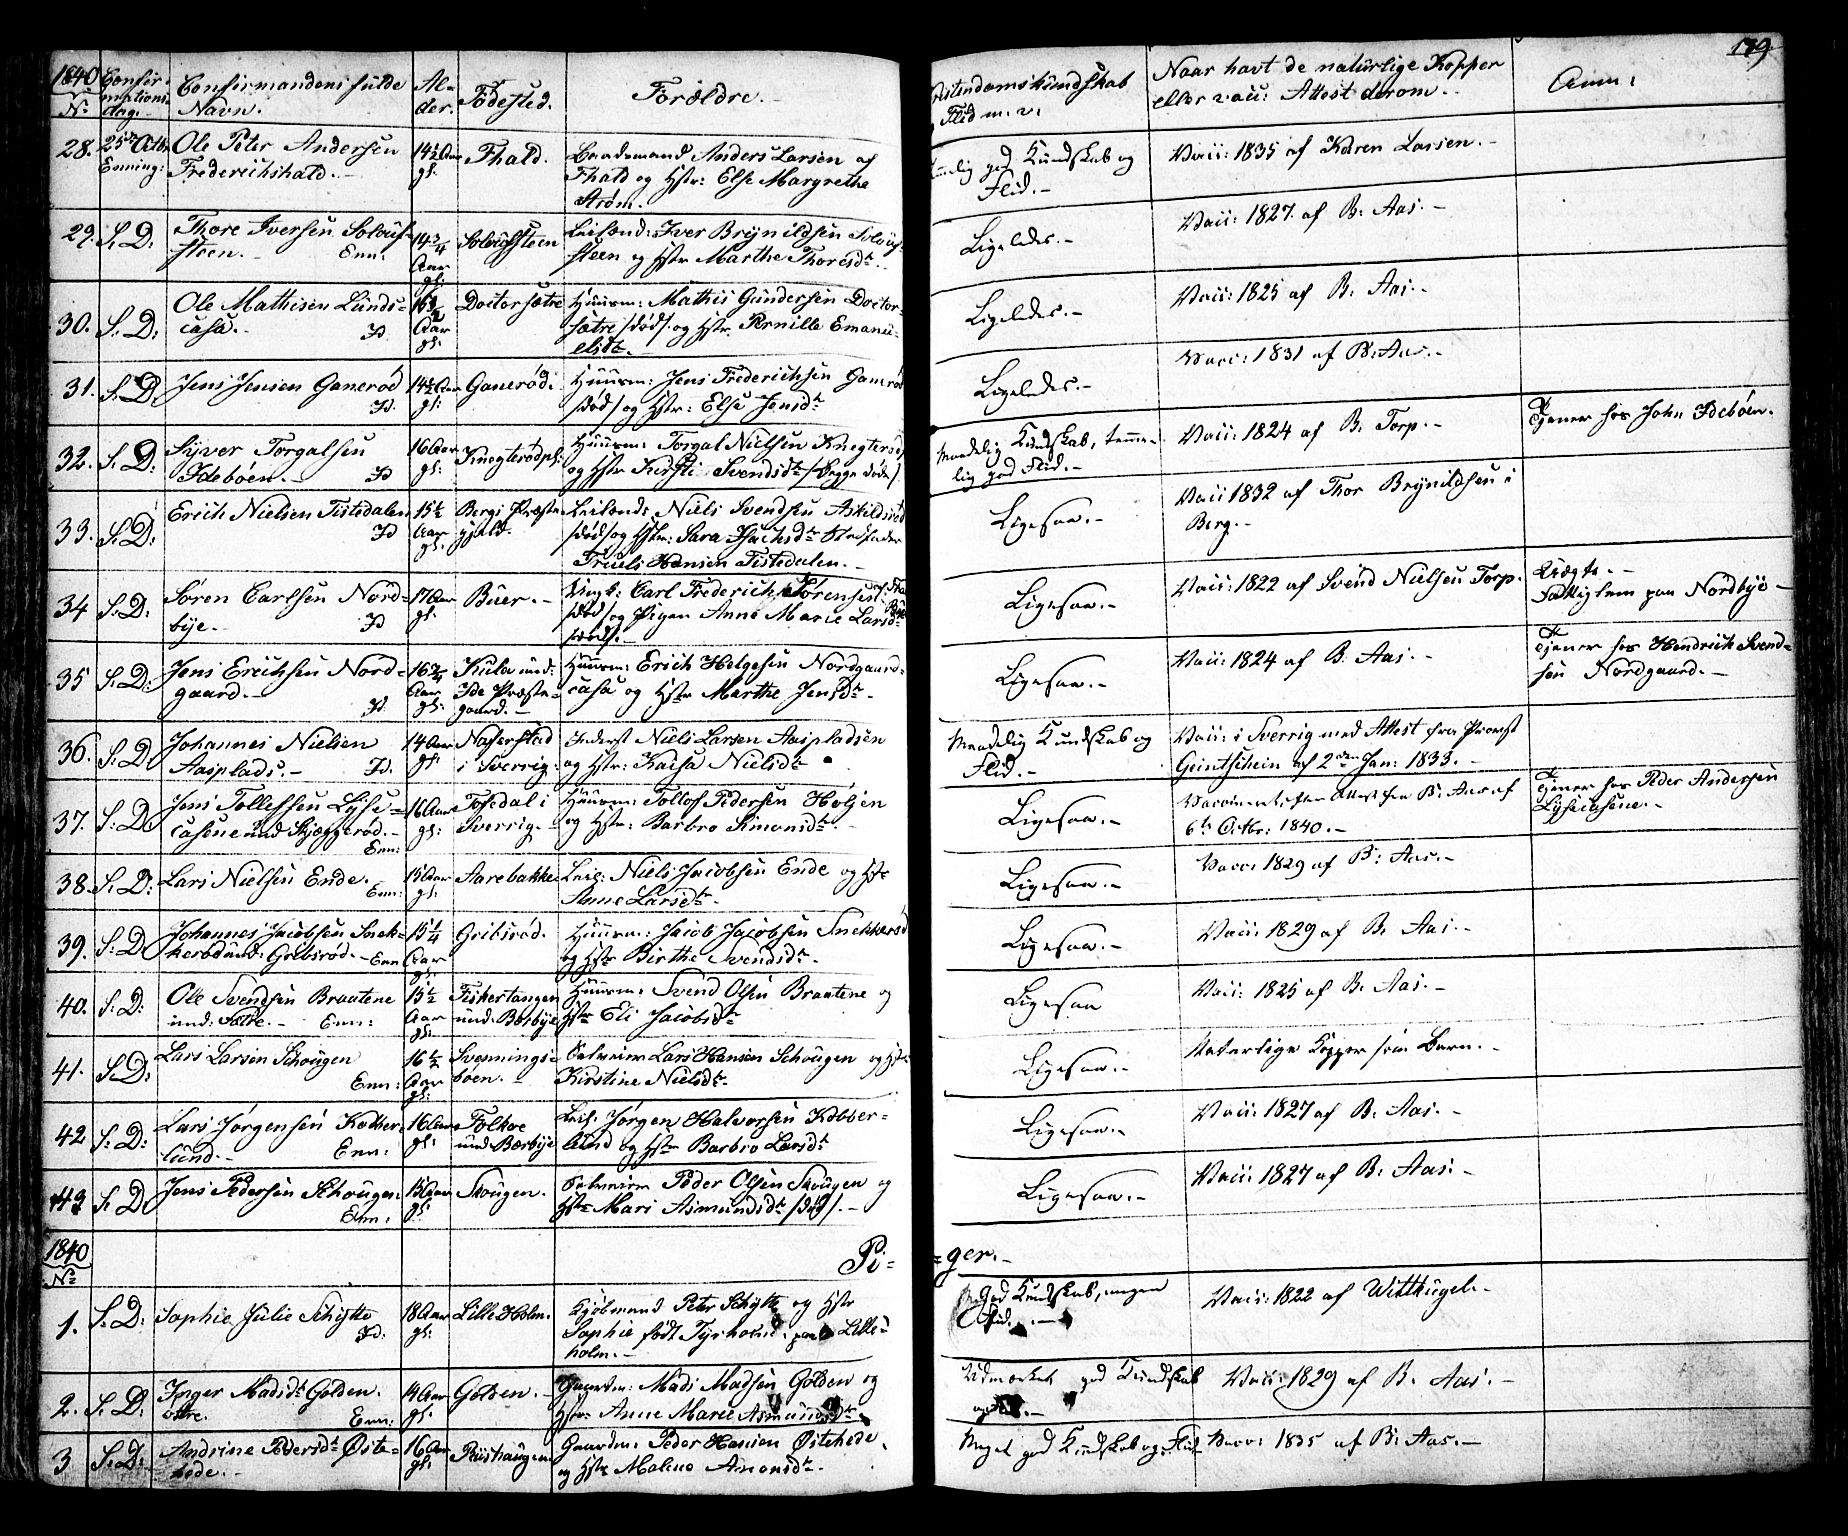 179
1840 Confirmations dag. Confirmandens fulde Navn. Alder. Födested. Forældre. Christendomskundskab Flid m. v. Naar havt de natürlige Kopper eller vacc: Attest derom. Anm:
No
28. 25de Octbr Enning: Ole Peter Andersen Frederichshald. 14½ Aar gl: Fhald. Baadsmand Anders Larsen af Fhald og Hstr: Else Margrethe Strøm. god Kundskab og Flid. Vacc: 1835 af Karen Larsen.
29. S. D: Thore Iversen Solvüfsteen. Enn: 14¾ Aar gl: Leilænd: Iver Brynildsen og Hstr Marthe Thoresdtr. Ligeledes. Vacc: 1827 af B: Aas.
30. S. D: Ole Mathisen Lundscasa. Id Aar gl: Doctorsætre Huusm: Mathis Gundersen Doctorsætre /død/ og Hstr. Pernille Emanuelsdtr. Ligeledes. Vacc: 1825 af B. Aas.
31. S. D: Jens Jensen Ganerød Id. 14½ Aar gl: Ganerød. Huusm: Jens Frederichsen Ganerød /død/ og Hstr: Else Jensdtr Ligeledes. Vacc: 1831 af B. Aas.
32. S. D: Syver Torgalsen Idebøen. Id 16 Aar gl: Knegterødpl: Huusm: Torgal Nielsen og Hstr Kirsti Svendsdtr /begge døde/. Maadelig Kundskab, temmelig god Flid. Vacc: 1824 af B. Torp. Tjener hos John Idebøen.
33. S. D: Erich Nielsen Tistedalen Id 15½ Aar gl: Bergs Præstegjeld. Leilænd: Niels Svendsen /død/ og Hstr: Sara Isachsdtr Stedfader Truels Hansen Tistedalen. Ligesaa. Vacc 1832 af Thor Brynildsen i Berg.
34 S. D: Søren Carlsen Nordbye. Id 17 Aar gl: Buer. Ungk: Carl Frederich Sørensen /død/ og Pigen Anne Marie Larsdtr. Ligesaa. Vacc: 1822 af Svend Nielsen Torp. Fattiglem paa Nordbye
35 S. D: Jens Erichsen Nordgaard. Id Aar gl: Kula und: Ide Præstegaard. Huusm: Erich Helgesen Nordgaardcasa og Hstr Marthe Jensdtr. Ligesaa. Vacc: 1824 af B. Aas. Tjener hos Hendrich Svendsen Nordgaard.
36. S. D: Johannes Nielsen Aasplads. Id. 14 Aar gl: i Sverrig: Inderst Niels Larsen Aaspladsen og Hstr: Kaisa Nielsdtr Maadelig Kundskab og Flid. Vacc: i Sverrig med Attest fra Provst af 2den Jan: 1833.
37. S. D: Jens Tollefsen Lysecasene und Skjeggerød. Enn: 16 Aar gl: i Sverrig. Huusm: Tollof Pedersen og Hstr: Barbro Simonsdtr. Ligesaa. Vaccineret efter Attest fra B. Aas af 6te Octbr: 1840. Tjener hos Peder Andersen Lysecasene.
38. S. D: Lars Nielsen Ende. Enn: 15 Aar gl: Aarebakke Leil: Niels Jacobsen Ende og Hstr Anne Larsdtr. Ligesaa. Vacc: 1829 af B: Aas.
39. S. D: Johannes Jacobsen Snekkerød und: Gribsrød. Enn 15¼ Aar gl: Gribsrød. Huusm: Jacob Jacobsen Snekkerød og Hstr Birthe Svendsdtr. Ligesaa. Vacc: 1829 af B. Aas.
40. S. D: Ole Svendsen Braatene und: Sætre. Enn: 15½ Aar gl: Fiskertangen und: Børbye Huusm: Svend Olsen Braatene og Hstr Eli Jacobsdtr Ligesaa Vacc: 1825 af B. Aas.
41. S. D: Lars Larsen Schougen Enn: 16½ Aar gl: Svenningsbøen. Selveier Lars Hansen Schougen og Hstr: Kirstine Nielsdtr. Ligesaa. Naturlige Kopper som Barn.
42 S. D: Lars Jørgensen Kobberlund. Enn: 16 Aar gl: Folkoe und Børbye Leil: Jørgen Halvorsen Kobberlund og Hstr Barbro Larsdtr Ligesaa. Vacc: 1827 af B. Aas.
43 S. D: Jens Pedersen Schougen: Enn: 15 Aar gl: Skougen. Selveier Peder Olsen Skougen og Hstr: Mari Asmundsdtr /død/. Ligesaa. Vacc: 1827 af B: Aas.
1840 Pi=ger.
No
1. S. D: Sophie Julie Schytte Id: 18 Aar gl: Lille Holm. Kjøbmand Peter Schytte og Hstr Sophie født Tyrholm paa Lilleholm. God Kundskab, megen Flid. Vacc: 1822 af Witthugel.
2. S. D: Inger Madsdtr Golden østre. Enn: 14 Aar gl: Golden. Gaardm: Mads Madsen Golden og Hstr Anne Marie Asmundsdtr. Udmærket god Kundskab Vacc: 1829 af B. Aas.
3 S. D: Andrine Pedersdtr Østehede. 16 Aar gl: Riishaugen Gaardm: Peder Hansen Østehede og Hstr Malene Amonsdtr. Meget god Kundskab og Flid Vacc: 1835 af B: Aas.